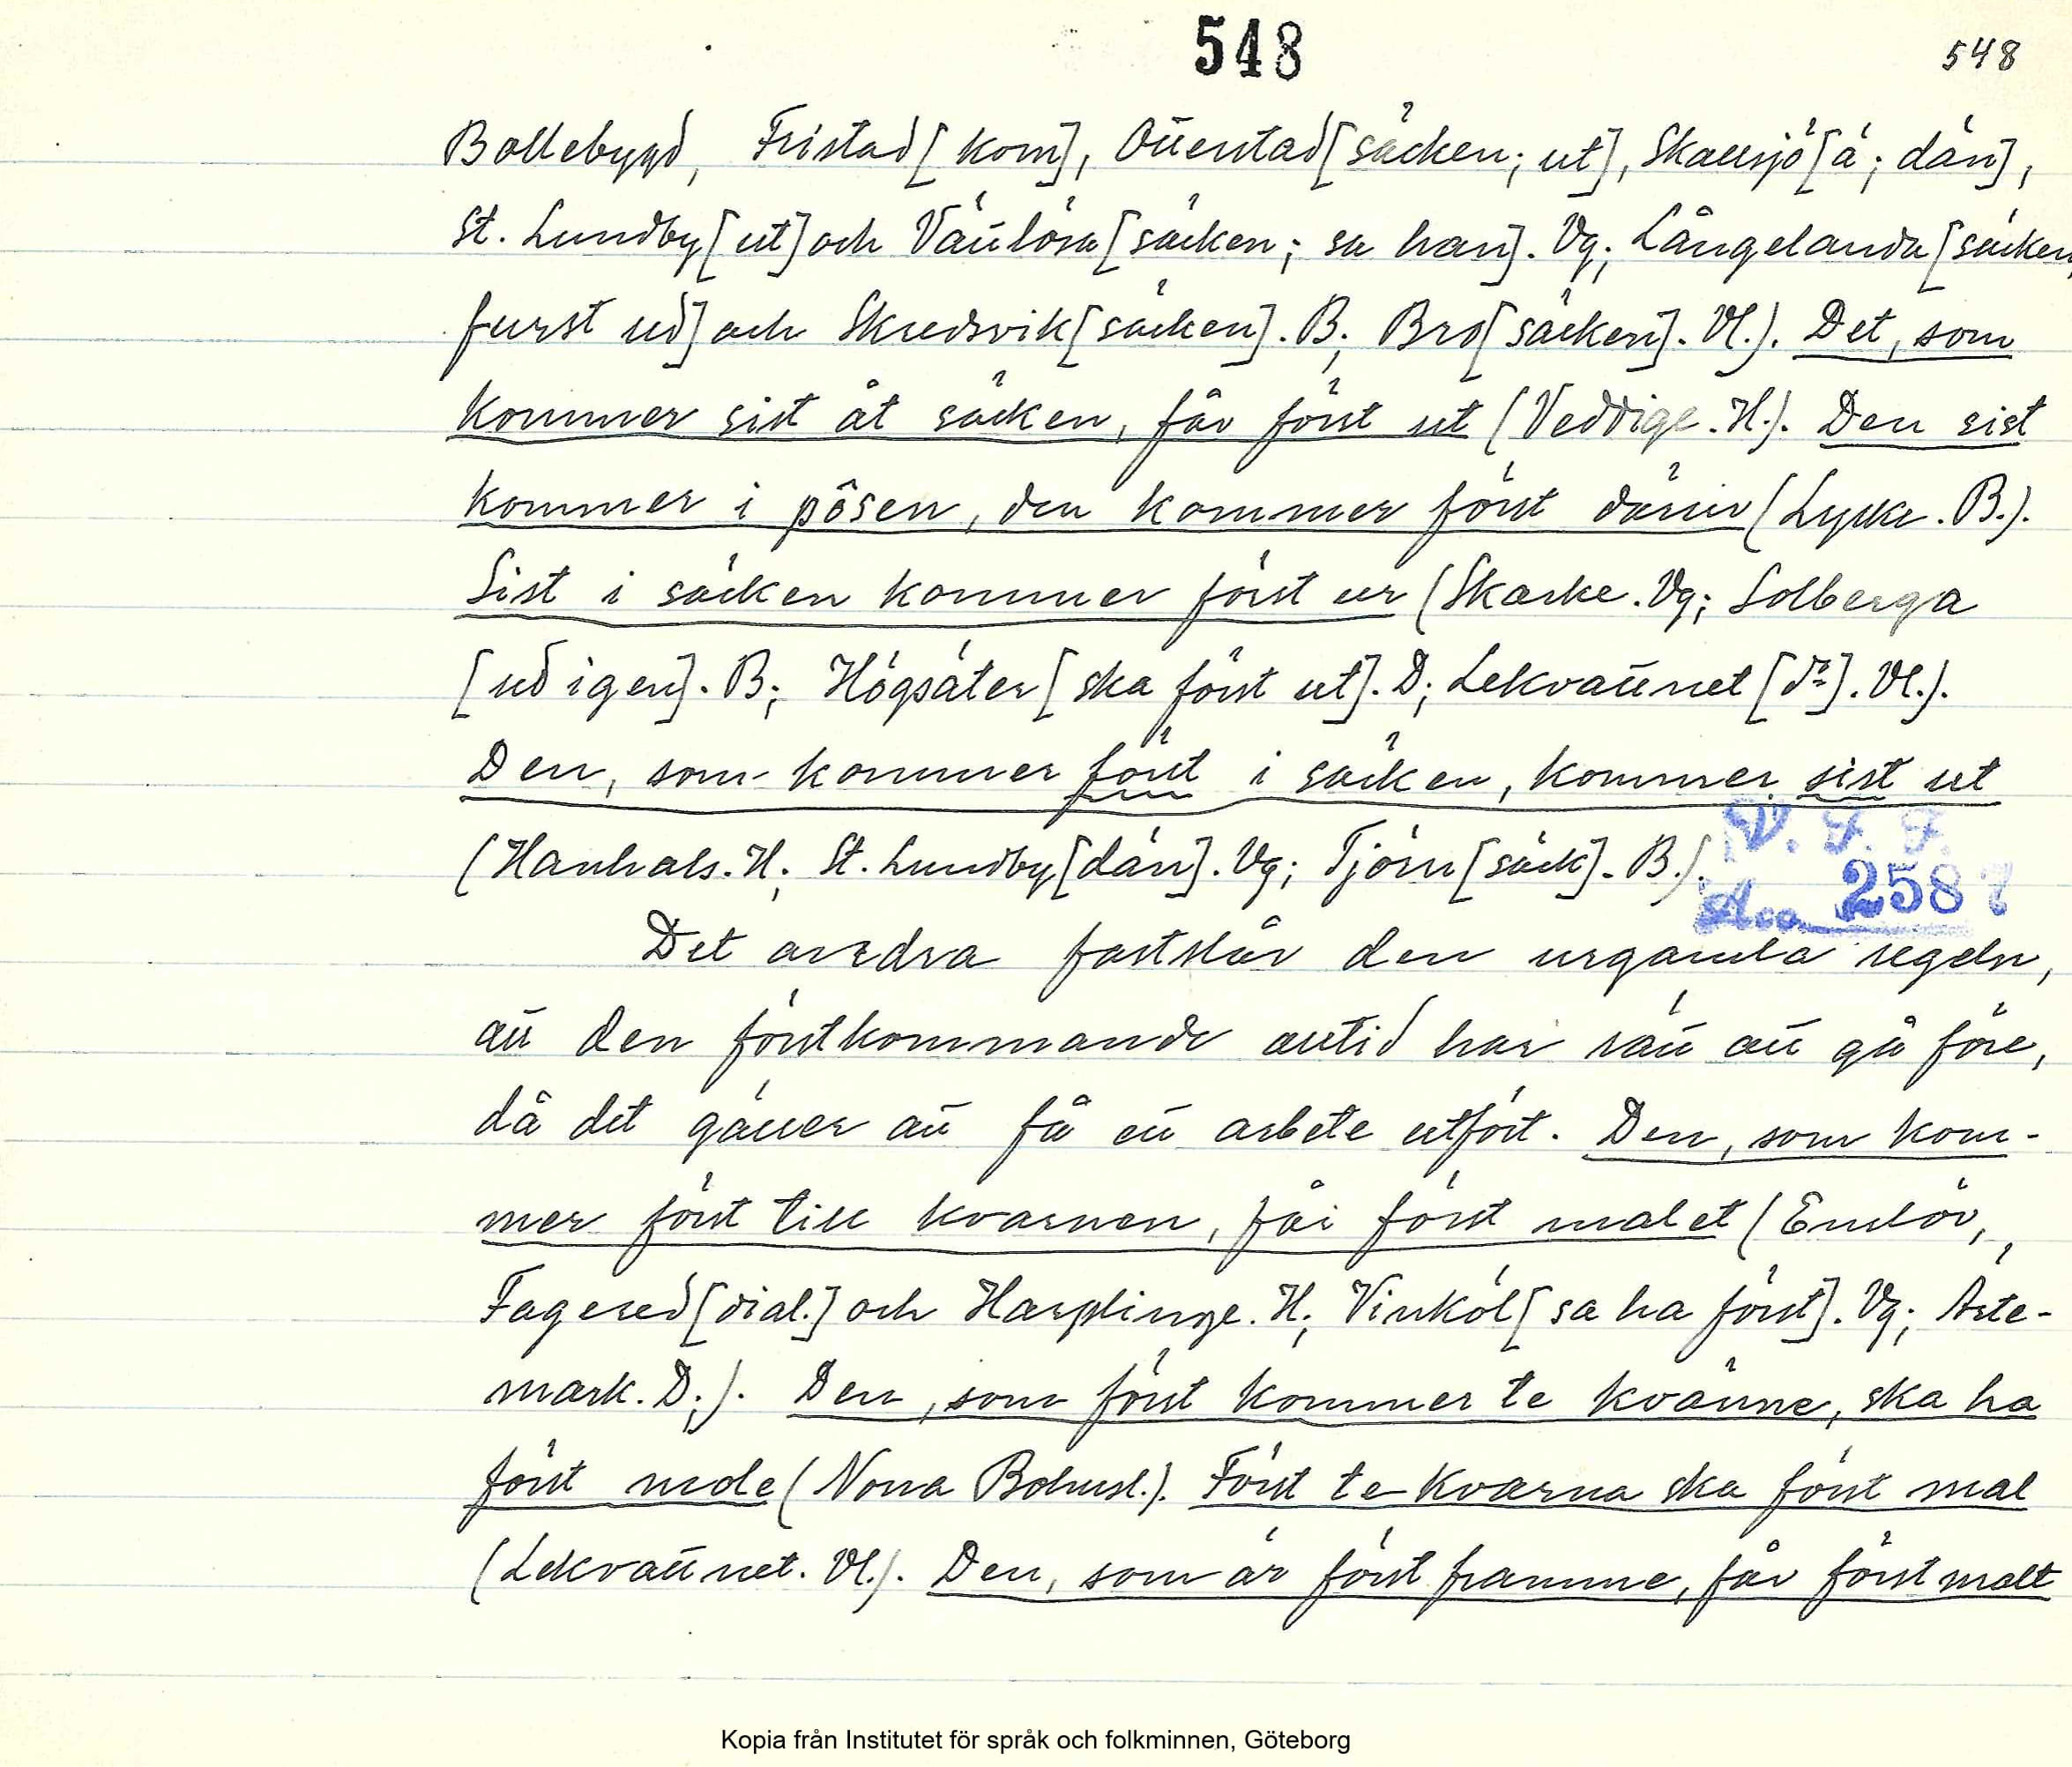 548
548
Bollebygd, Fristad [kom], Otterstad [säcken; ut], Skallsjö [ä; dän],
St. Lundby [ut] och Vättlösa [säcken; sa han]. Vg; Långelanda [säcken,
furst ud] och Skredsvik [säcken]. B; Bro [säcken]. Vl.). Det, som
kommer sist åt säcken, får först ut (Veddige. H.). Den sist
kommer i pôsen, den kommer först därur (Lycke. B.).
Sist i säcken kommer först ur (Skarke. Vg; Solberga
[ud igen]. B; Högsäter [ska först ut]. D; Lekvattnet [do]. Vl.).
Den, som kommer först i säcken, kommer sist ut
(Hanhals. H; St. Lundby [dän]. Vg; Tjörn [säck]. B.).
V. F. F.
Acc. 2587
Det andra fastslår den urgamla regeln,
att den förstkommande alltid har rätt att gå före,
då det gäller att få ett arbete utfört. Den, som kom-
mer först till kvarnen, får först malet (Enslöv,
Fagered [dial.] och Harplinge. H; Vinköl [sa ha först]. Vg; Ärte-
mark. D.). Den, som först kommer te kvänne, ska ha
först mole (Norra Bohusl.). Först te kvarna ska först mal
(Lekvattnet. Vl.). Den, som är först framme, får först malt
Kopia från Institutet för språk och folkminnen, Göteborg